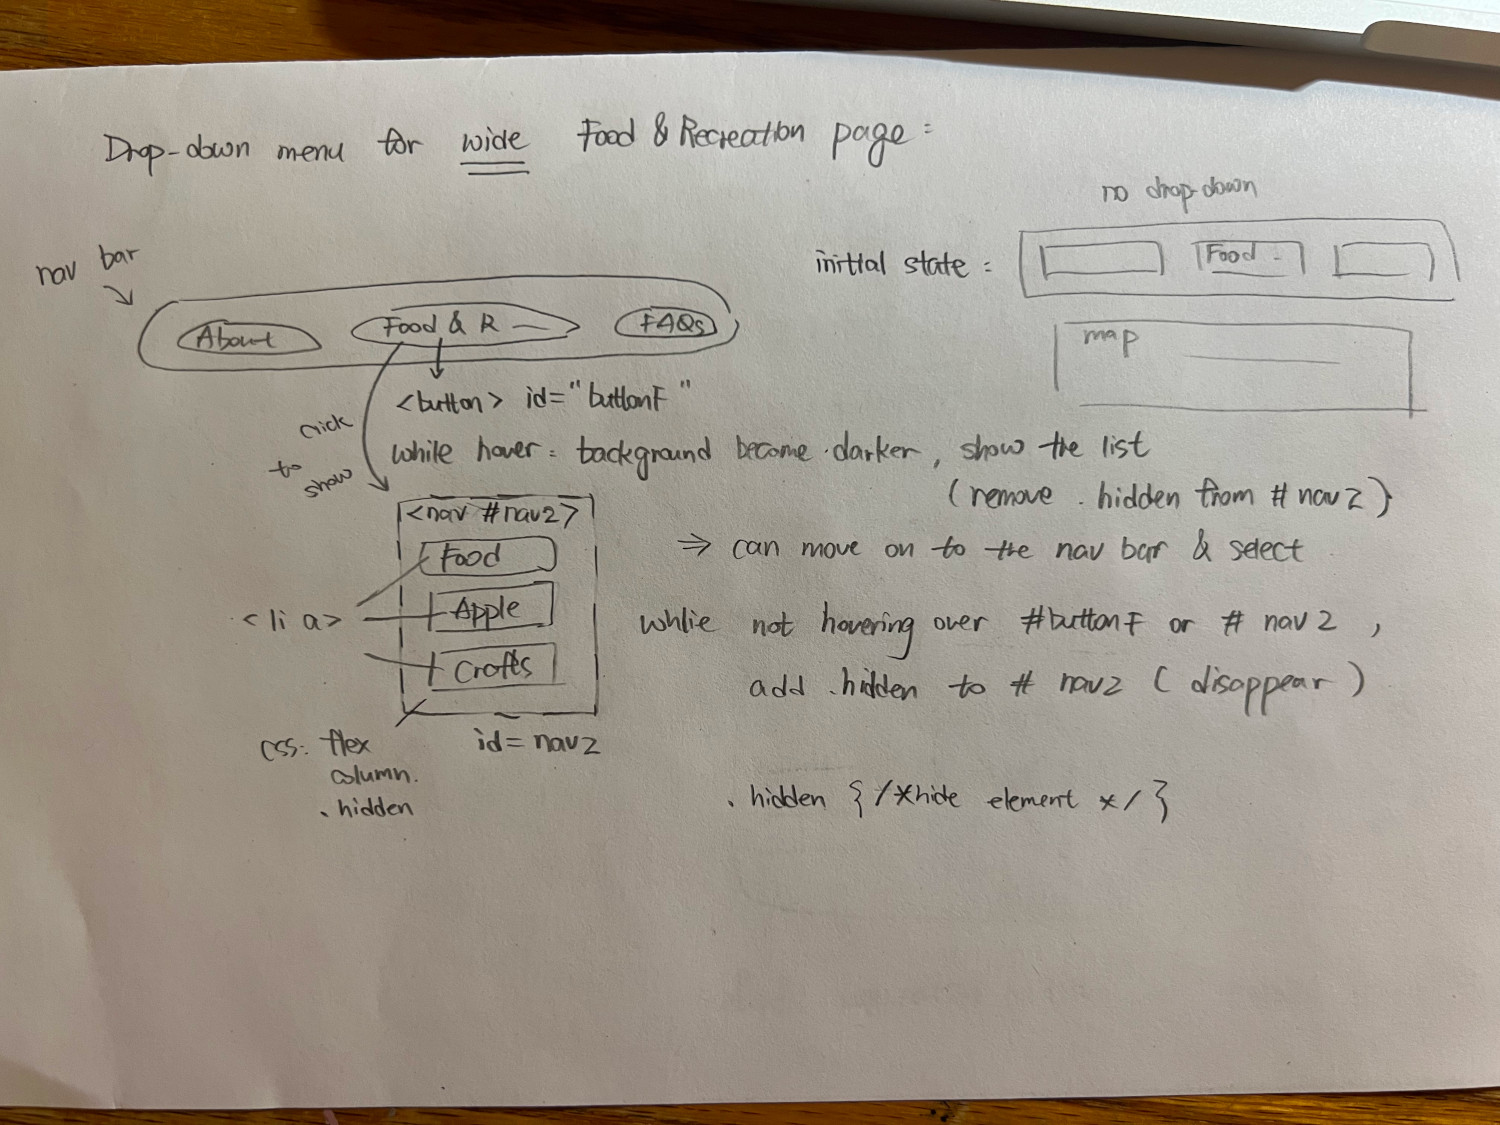 Drop-down menu for wide Food & Recreation page:
no drop-down
initial state:
Food
map
nav bar
About
Food & R
FAQs
<button> id="buttonF"
click
to
show
while hover: background become darker, show the list
(remove .hidden from #nav2)
⇒ can move on to the nav bar & select
<nav #nav2>
Food
Apple
Crafts
<li a>
id=nav2
css: flex
column.
.hidden
whlie not hovering over #buttonF or #nav2,
add .hidden to #nav2 (disappear)
.hidden {/*hide element */}